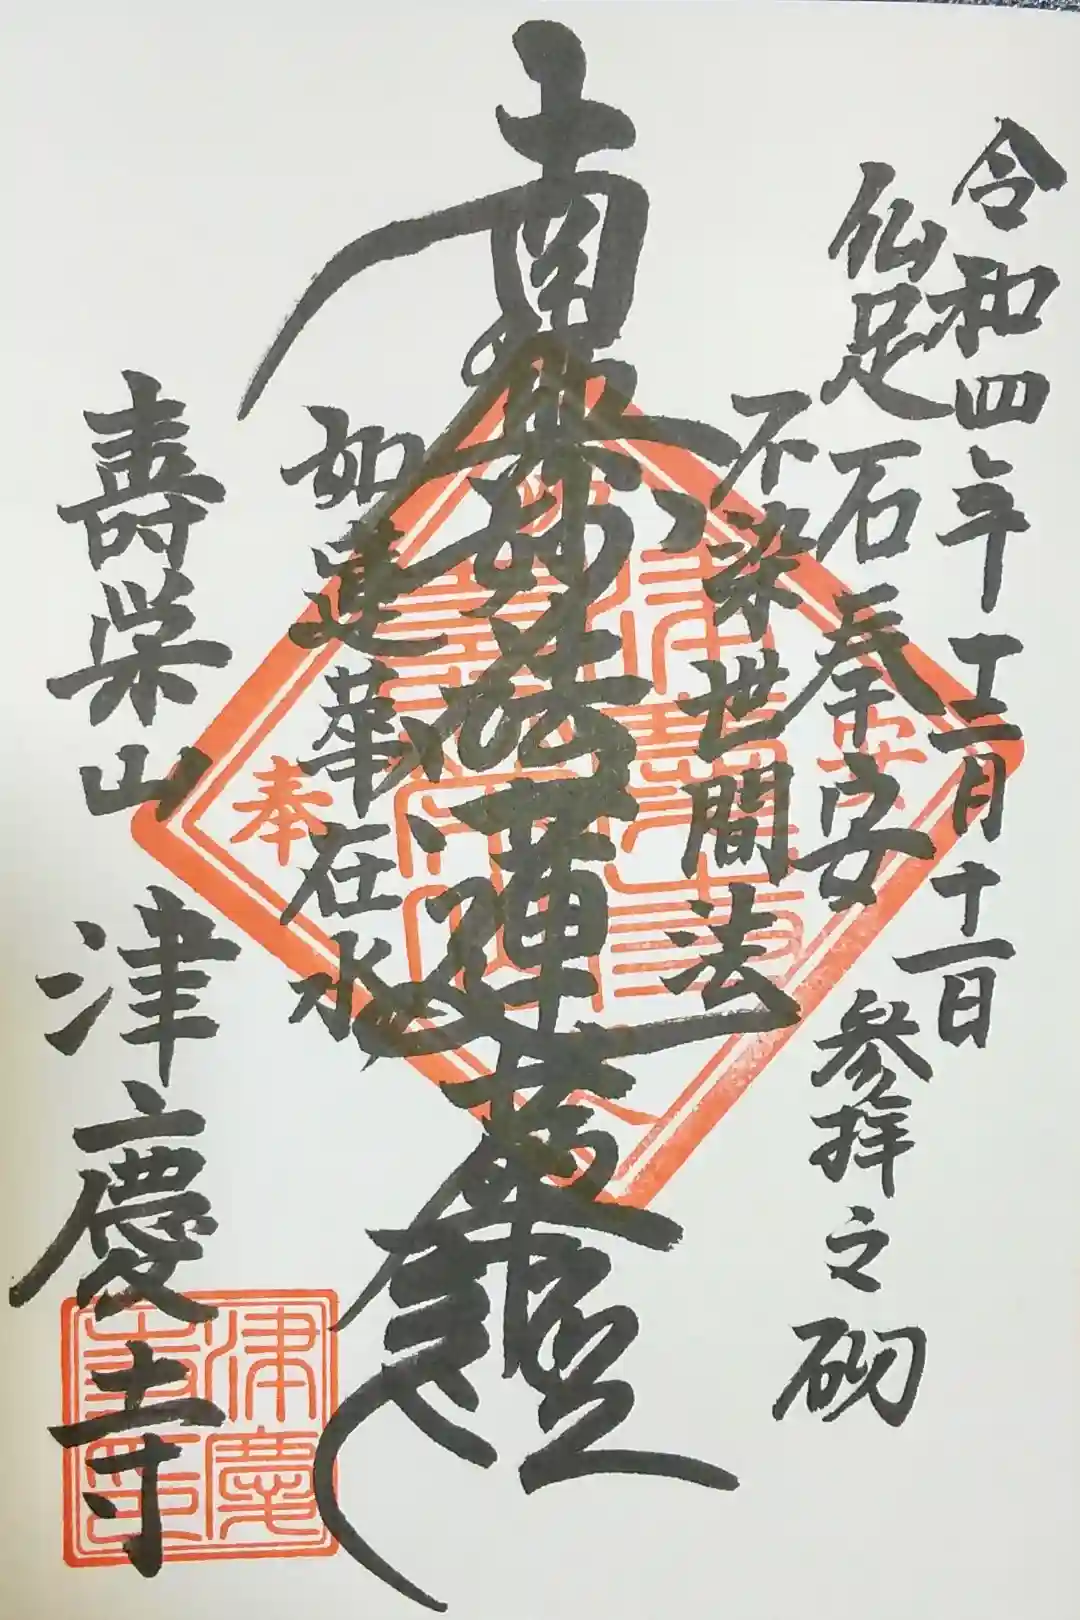 令和四年十二月十一日
仙足石奉安 参拝之砌
不染世間法
南無妙法蓮華経
如蓮華在水
壽栄山 津慶寺
奉
安
津慶寺